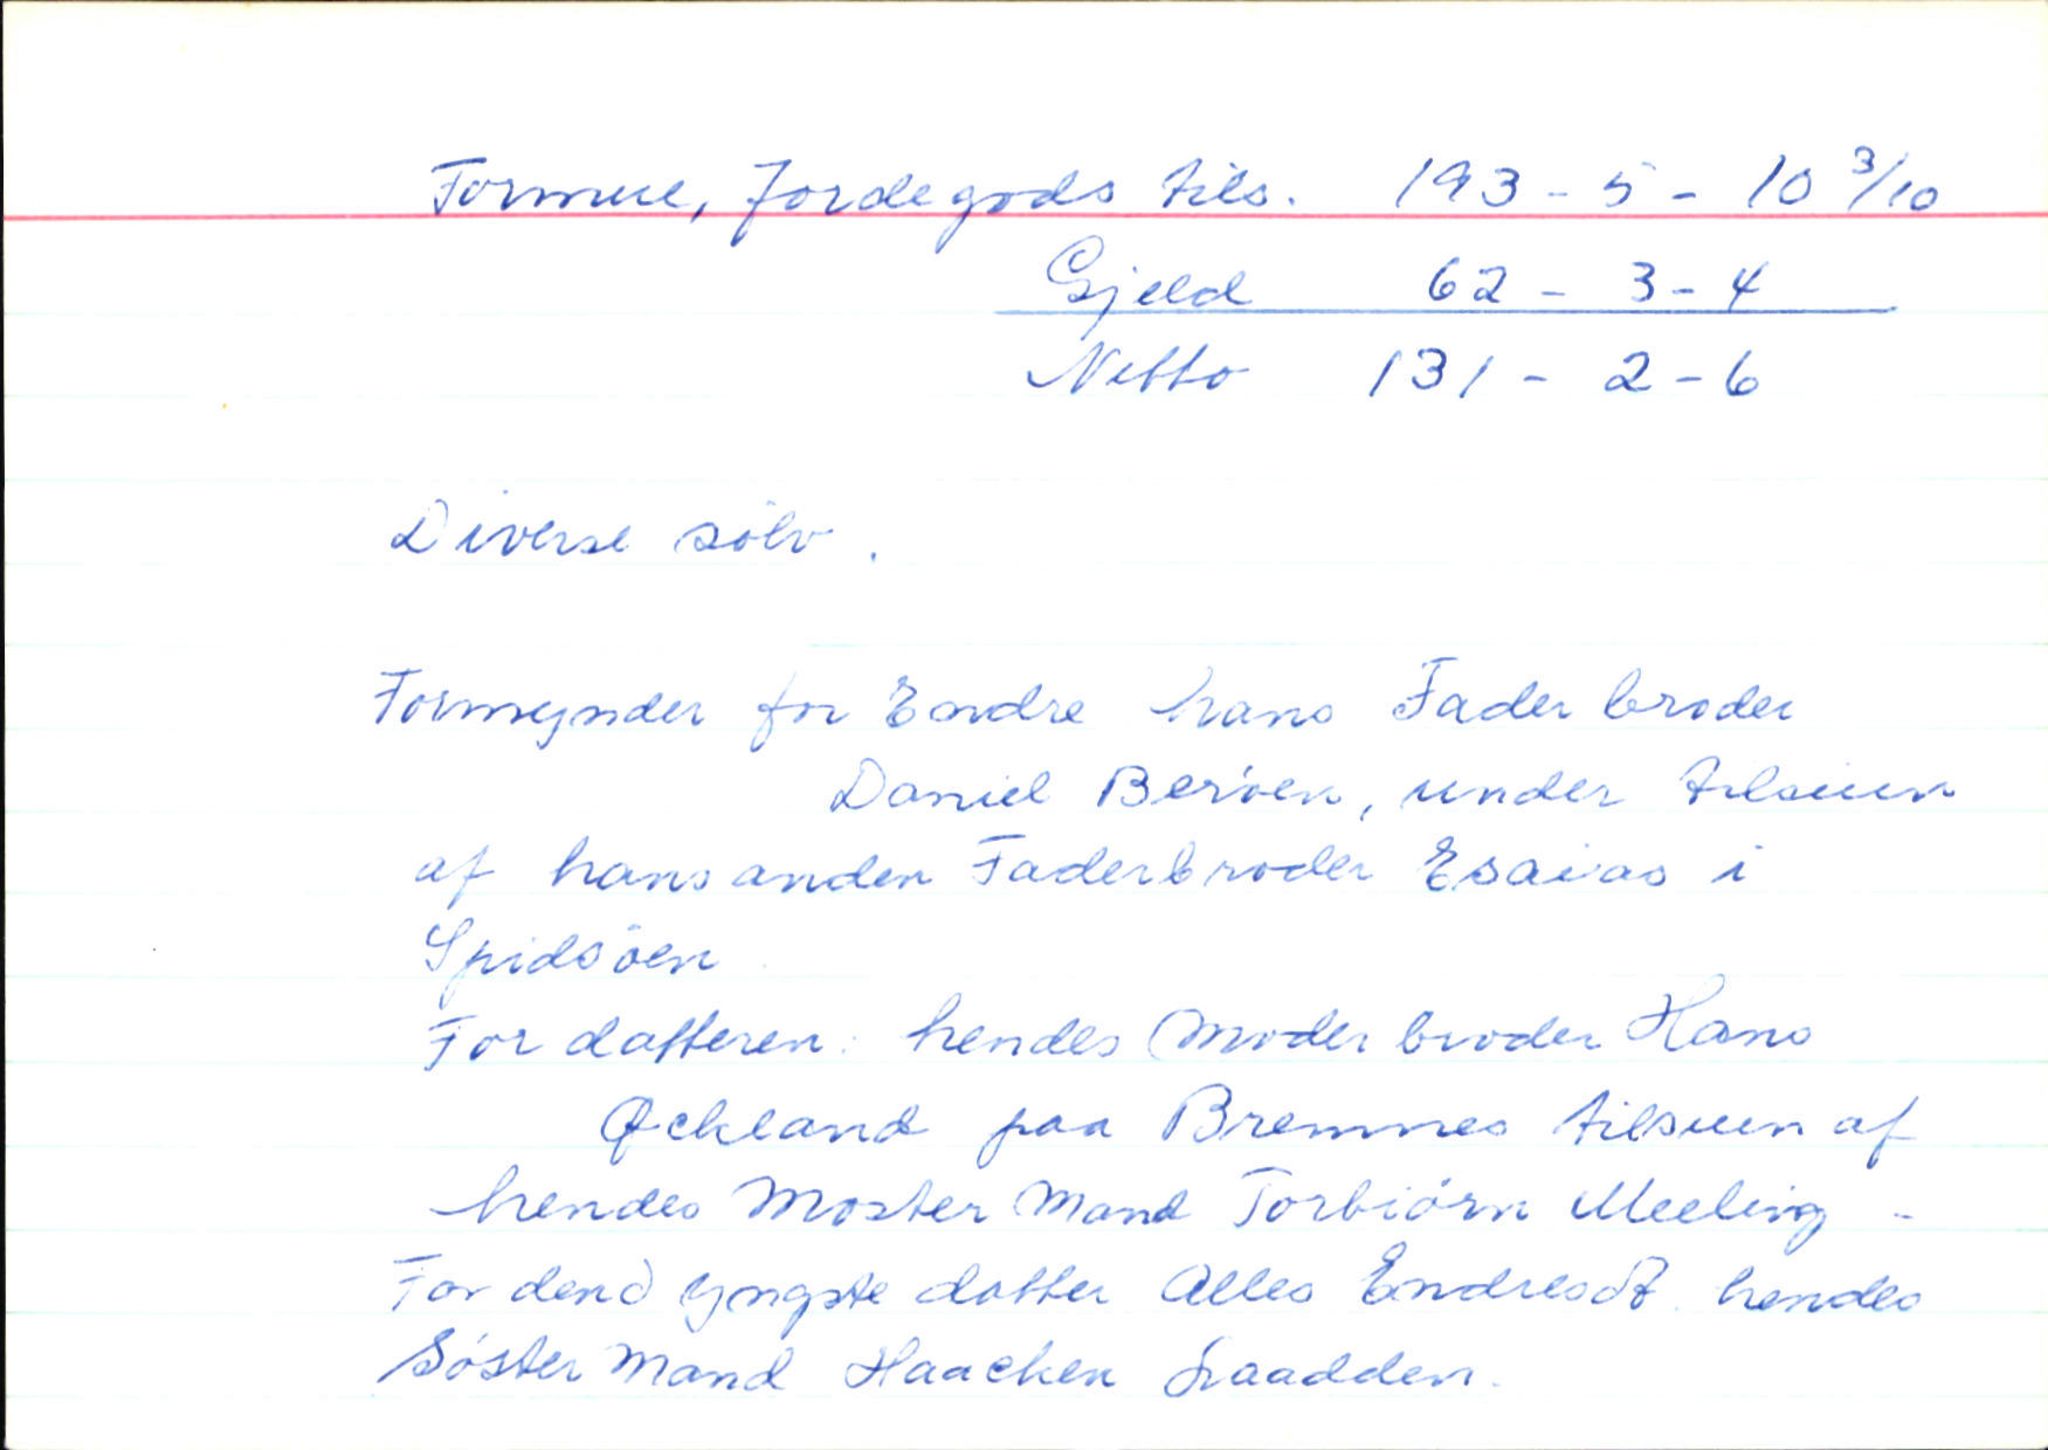 Formue, Jordegods tils. 193 - 5 - 10 3/10
Gjeld 62 - 3 - 4
Netto 131 - 2 - 6
Diverse sölv.
Formynder for Endre hans Fader broder
Daniel Beröen, under tilsiun
af hans anden Faderbroder Esaias i
Spidsöen
For datteren: hendes Moder broder Hans
Øckland paa Bremnes tilsuun af
hendes Moster Mand Torbiörn Meeling -
For dend yngste datter Alles Endresdt. hendes
Söster Mand Haacken